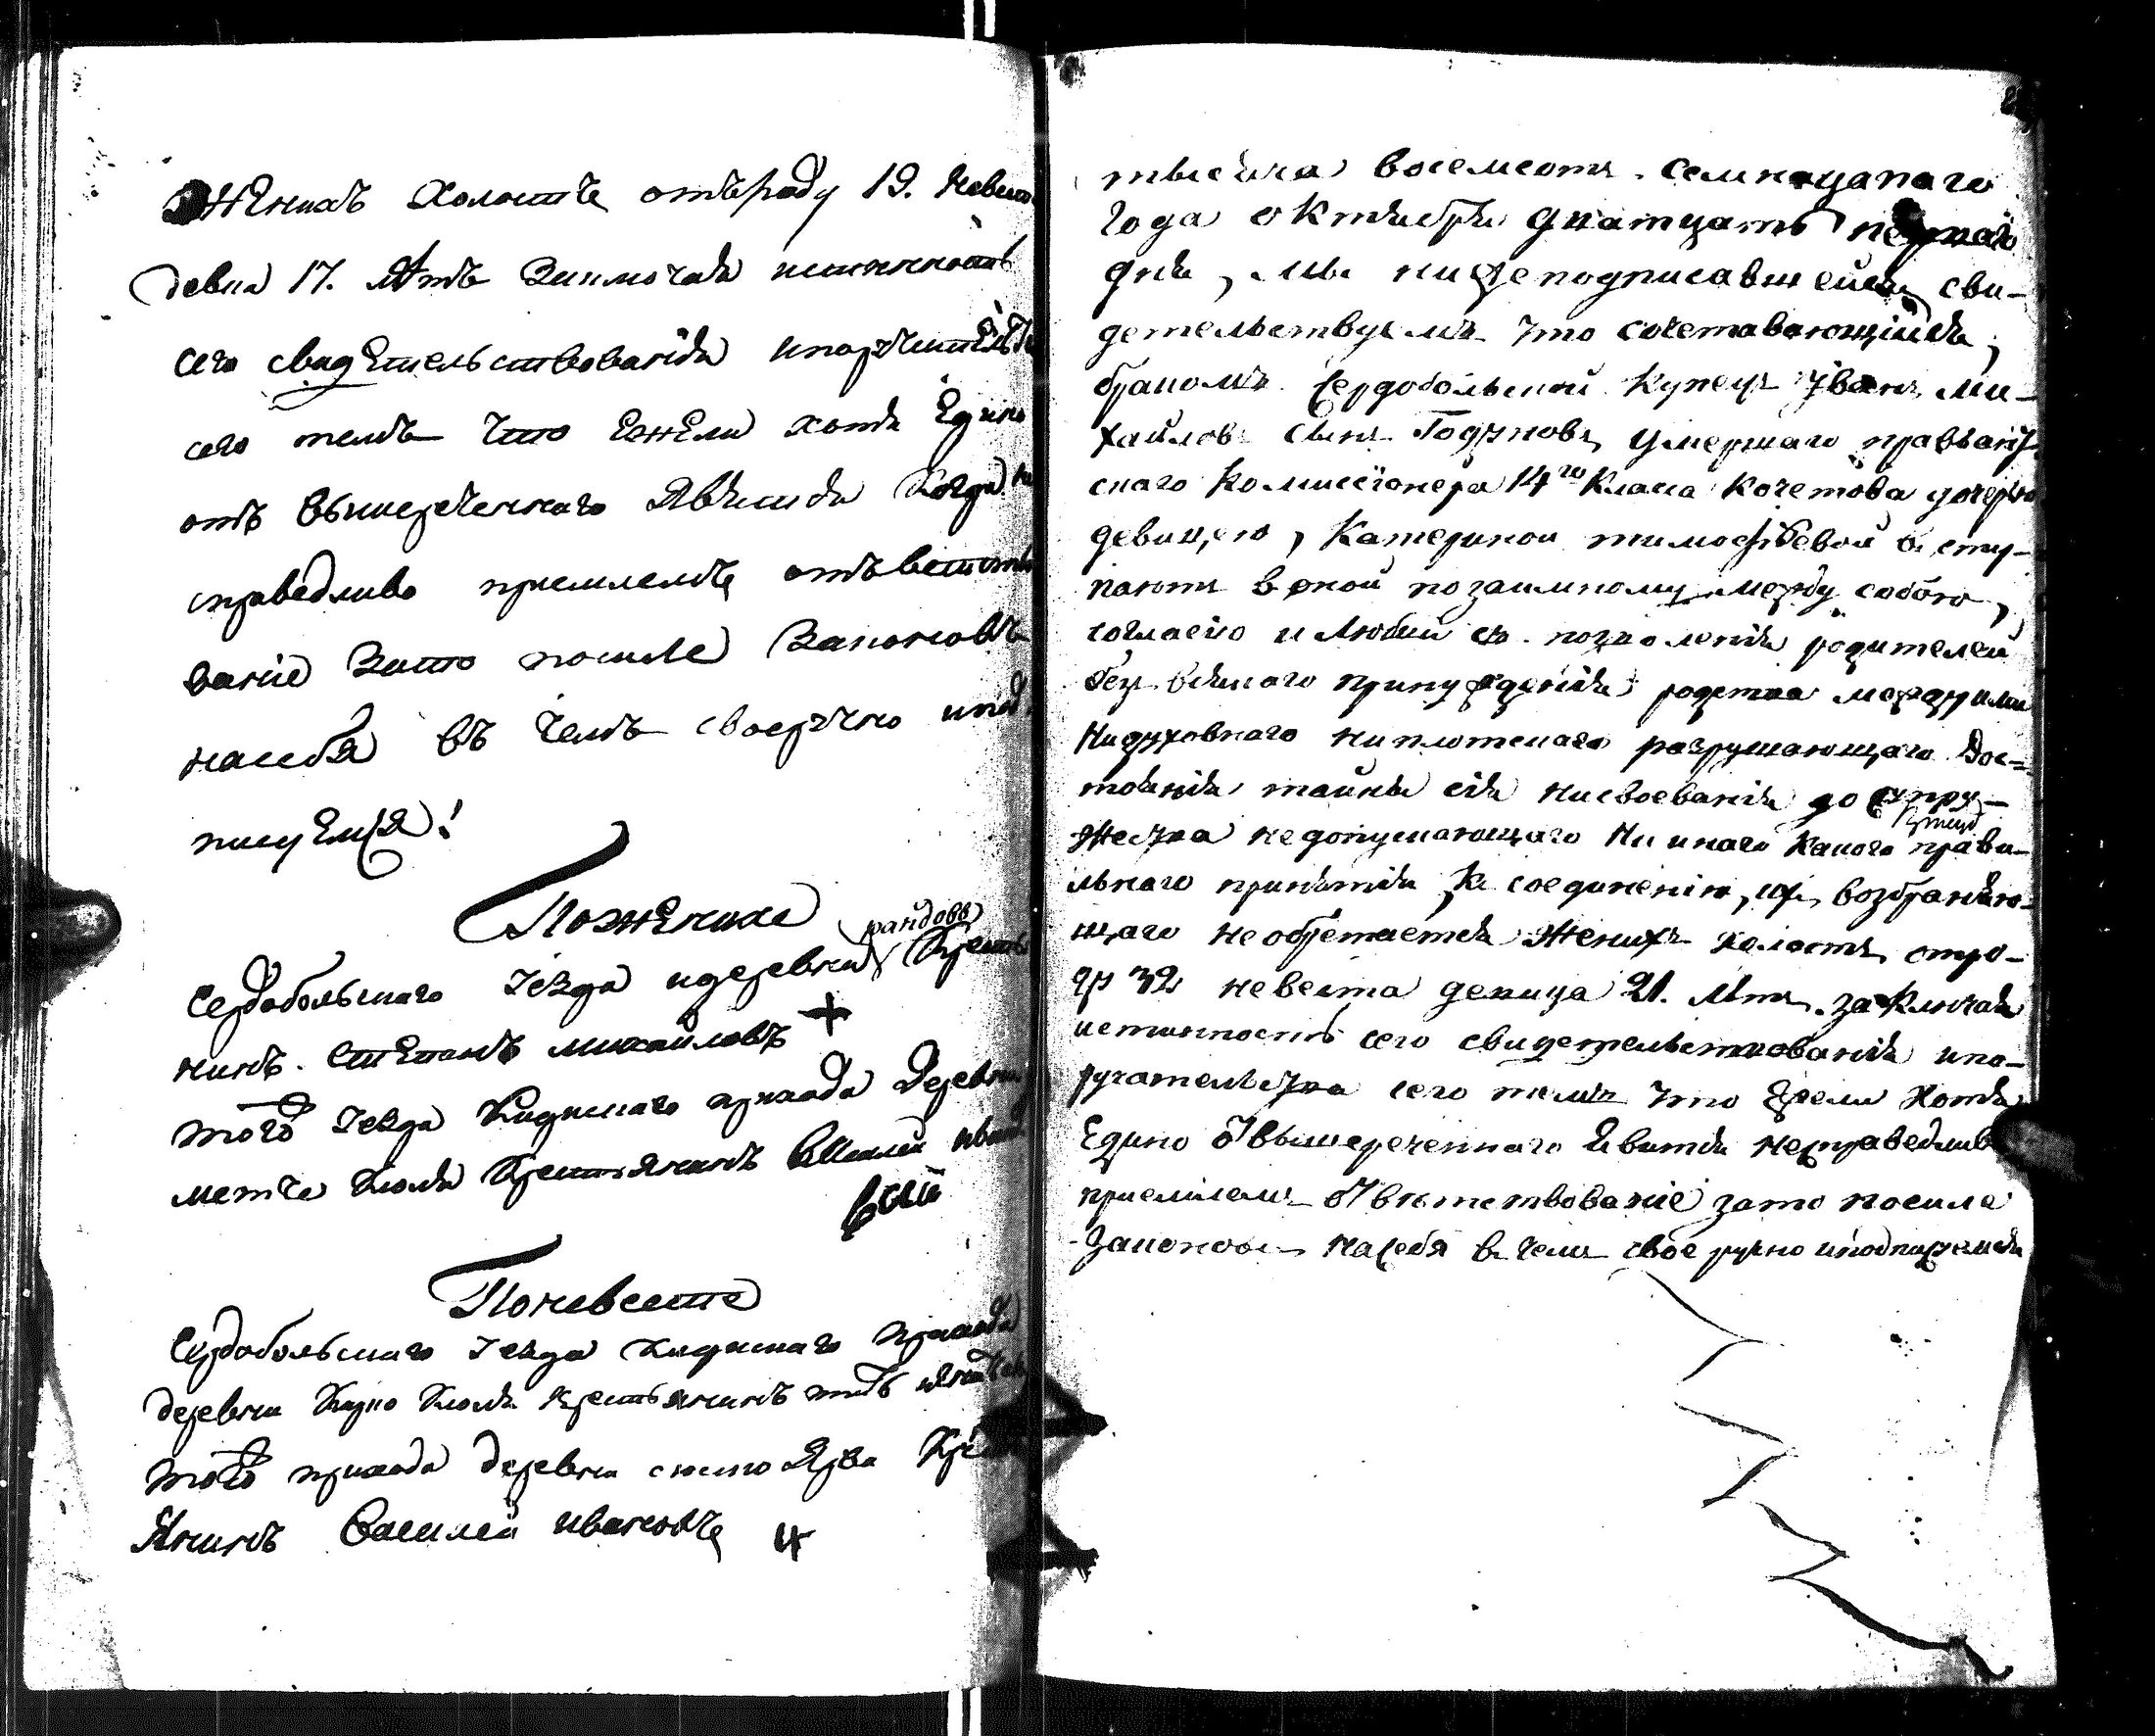 Женихъ холостъ отъроду 19. невес
девка 17. лѣтъ заключая истинность
сего свидѣтельствования ипоручительст
сего темъ что ежели хотя едино
отъ вышереченнаго явится когда не
справедливо приемлемъ ответств
вание зато посиле законовъ
насебя въ чемъ своеручно ипод
писуемся!
Пожениха
Сердобольскаго уезда идеревни рандовы крестья
нинъ. Степанъ михайловъ +
тогоже уезда Кидискаго прихода деревни
метче кюля крестьянинъ Василей иван
овъ
Поневесте
Сердобольскаго уезда Кидискаго прихода
деревни Карно кюля крестьянинъ
тогоже прихода деревни сюскоярви кре
янинъ Василей ивановъ
тысяча восемсотъ семнацатаго
года октября дватцать перваго
дня, мы нижеподписавшейся сви-
детельствуемъ что сочетавающийся,
бракомъ Сердобольской купецъ Иванъ Ми-
хайловъ сынъ Годуновъ, умершаго правьянт-
скаго комиссионера 14го класа Кочетова дочерью
девицею, Катериной тимофѣевой въсту-
паютъ в оной повзаимному между собою,
согласию и любви съ позволения родителей
безъ всякаго принуждения родства междуими
нидуховнаго ниплотскаго разрушающаго дос-
тояния тайны сия нисвоевания до супру-
жества недопушающаго ни инаго какого прави-
льнаго принятия къ соединению, ихъ возбраняю-
щаго необретается женихъ холостъ, отро-
ду 32 невеста девица 21. летъ. заключая
истинность сего свидетельствования ипо-
ручательства сего темъ что ежели хотя
едино от вышереченнаго явится несправедливо
приемлемъ отвѣтствование зато посиле
законовъ насебя в чемъ своеручно иподписуемся